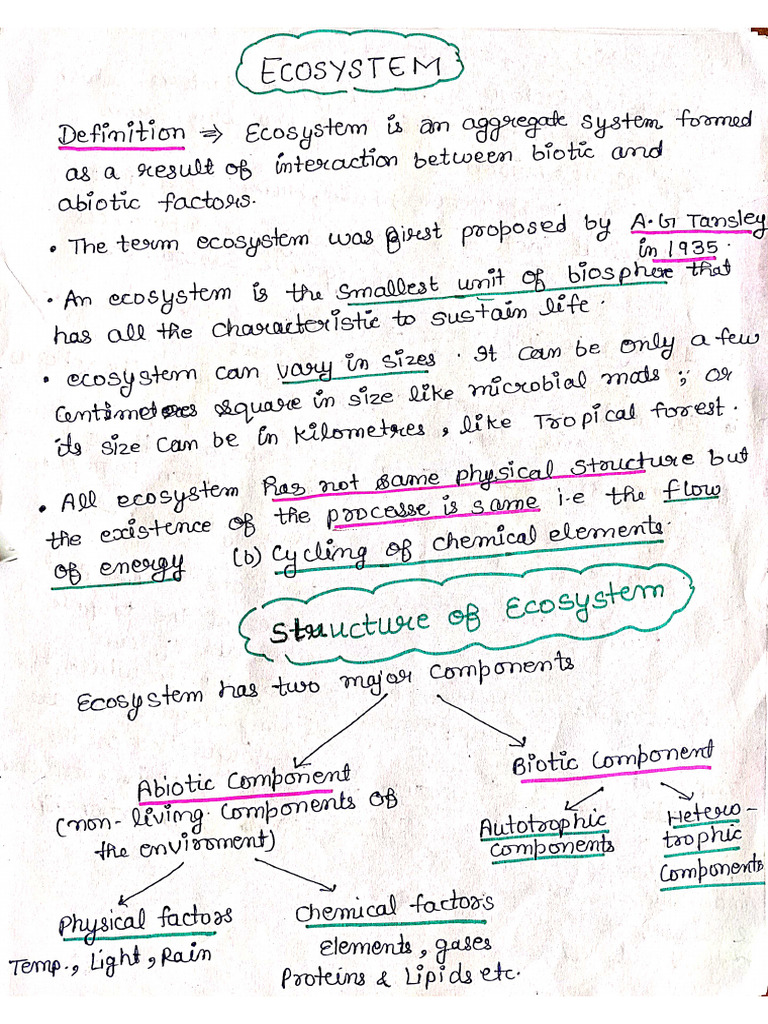 ECOSYSTEM
Definition ⇒ Ecosystem is an aggregate system formed
as a result of interaction between biotic and
abiotic factors.
• The term ecosystem was first proposed by A.G Tansley
in 1935.
• An ecosystem is the smallest unit of biosphere that
has all the characteristic to sustain life.
• ecosystem can vary in sizes. It can be only a few
centimetres square in size like microbial mats ; or
its size can be in kilometres, like Tropical forest.
• All ecosystem has not same physical structure but
the existence of the processe is same i.e the flow
of energy (b) cycling of chemical elements.
Structure of Ecosystem
Ecosystem has two major components
Abiotic Component
(non-living components of
the enviroment)
Biotic Component
Autotrophic
components
Hetero-
trophic
components
Physical factors
Temp., Light, Rain
Chemical factors
Elements, gases
Proteins & Lipids etc.